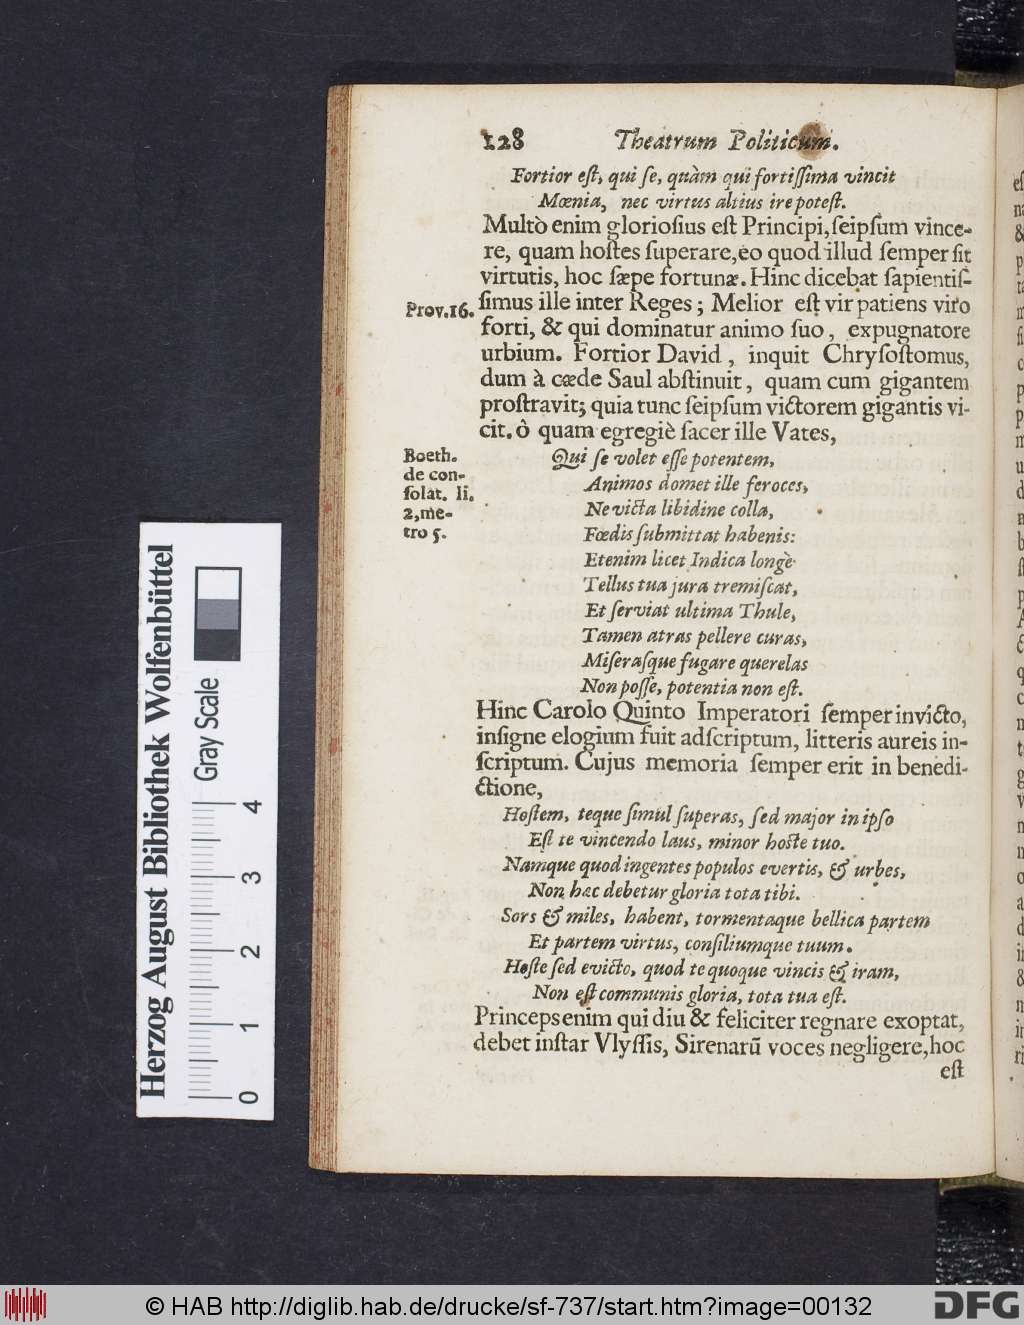 128 Theatrum Politicum.
Fortior eſt, qui ſe, quàm qui fortiſſima vincit
Mœnia, nec virtus altius ire poteſt.
Multò enim glorioſius eſt Principi, ſeipſum vince-
re, quam hoſtes ſuperare, eo quod illud ſemper ſit
virtutis, hoc ſæpe fortunæ. Hinc dicebat ſapientiſ-
Prov. 16.
ſimus ille inter Reges; Melior eſt vir patiens viro
forti, & qui dominatur animo ſuo, expugnatore
urbium. Fortior David, inquit Chryſoſtomus,
dum à cæde Saul abſtinuit, quam cum gigantem
proſtravit; quia tunc ſeipſum victorem gigantis vi-
cit. ò quam egregiè ſacer ille Vates,
Boeth.
de con-
ſolat. li.
2, me-
tro 5.
Qui ſe volet eſſe potentem,
Animos domet ille feroces,
Ne victa libidine colla,
Fœdis ſubmittat habenis:
Etenim licet Indica longè
Tellus tua jura tremiſcat,
Et ſerviat ultima Thule,
Tamen atras pellere curas,
Miſeraſque fugare querelas
Non poſſe, potentia non eſt.
Hinc Carolo Quinto Imperatori ſemper invicto,
inſigne elogium fuit adſcriptum, litteris aureis in-
ſcriptum. Cujus memoria ſemper erit in benedi-
ctione,
Hoſtem, teque ſimul ſuperas, ſed major in ipſo
Eſt te vincendo laus, minor hoſte tuo.
Namque quod ingentes populos evertis, & urbes,
Non hæc debetur gloria tota tibi.
Sors & miles, habent, tormentaque bellica partem
Et partem virtus, conſiliumque tuum.
Hoſte ſed evicto, quod te quoque vincis & iram,
Non eſt communis gloria, tota tua eſt.
Princeps enim qui diu & feliciter regnare exoptat,
debet inſtar Vlyſſis, Sirenarũ voces negligere, hoc
eſt
Herzog August Bibliothek Wolfenbüttel
Gray Scale
0 1 2 3 4
© HAB http://diglib.hab.de/drucke/sf-737/start.htm?image=00132
DFG